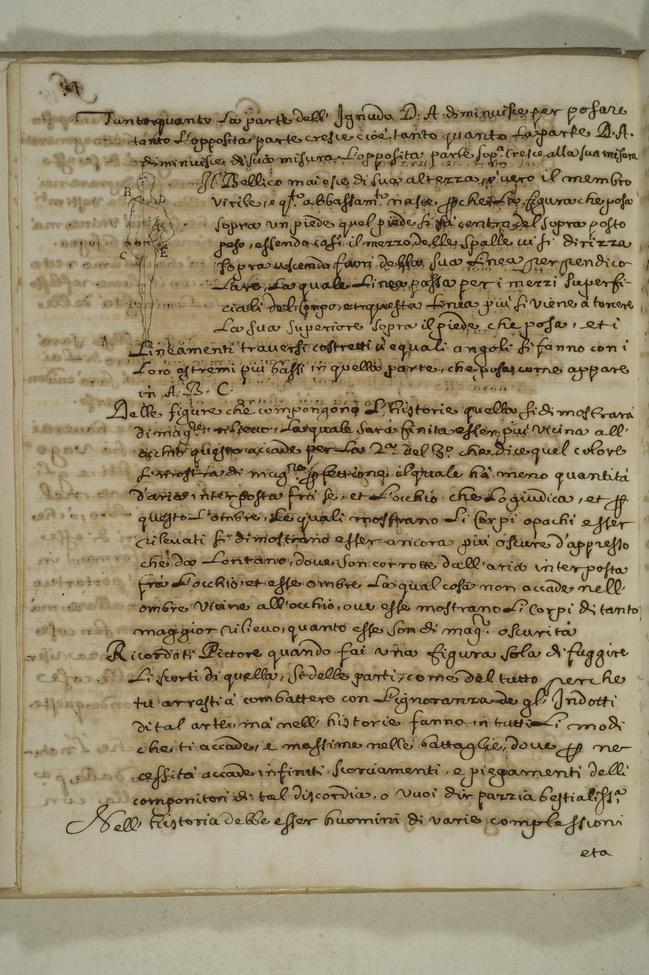 Tanto quanto la parte dell' Ignudo D. A. diminuisce per posare
tanto l'opposita parte cresce cioè tanto quanto la parte D. A.
diminuisce di sua misura l'opposita parte sop.ª cresce alla sua misura
Il Bellico mai esce di sua altezza, o vero il membro
virile, e q.to abbassam.to nasce perche la figura che posa
sopra un piede quel piede si fa centro del sopra posto
peso, essendo così il mezzo delle spalle vi si dirizza
sopra uscendo fuori della sua linea perpendico
lare, la quale linea passa per i mezzi superfi
ciali del corpo, et questa linea più si viene a torcere
la sua superiore sopra il piede che posa, et i
Lineamenti traversi costretti à equali angoli si fanno con i
loro estremi più bassi in quella parte, che posa come appare
in A. B. C.
Delle figure che compongono l'historie quella si dimostrarà
di mag.re rilievo, la quale sarà finita esser più vicina all'
occhio questo accade per la 2.ª del 3.º che dice quel colore
si mostra di mag.re perfettione, il quale hà meno quantità
d'aria interposta frà se, et l'occhio che lo giudica, et per
questo l'ombre, le quali mostrano li corpi opachi esser
rilevati si dimostrano esser ancora più oscure d'appresso
che da lontano, dove son corrotte dall'aria interposta
frà l'occhio, et esse ombre la qual cosa non accade nell'
ombre vicine all'occhio, ove esse mostrano li corpi di tanto
maggior rilievo, quanto esse son di mag.re oscurità
Ricordati Pittore quando fai una figura sola di fuggire
li scorti di quella, si delle parti, come del tutto perche
tu arresti à combattere con l'ignoranza de gl' Indotti
di tal arte, mà nell' historie fanno in tutti li modi
che ti accade, e massime nelle battaglie, dove per ne
cessità accade infiniti scorciamenti, e piegamenti delli
componitori di tal discordia, o vuoi dir pazzia bestialiss.ª
Nell' historia debbe esser huomini di varie complessioni
eta
B
D
A
C
E